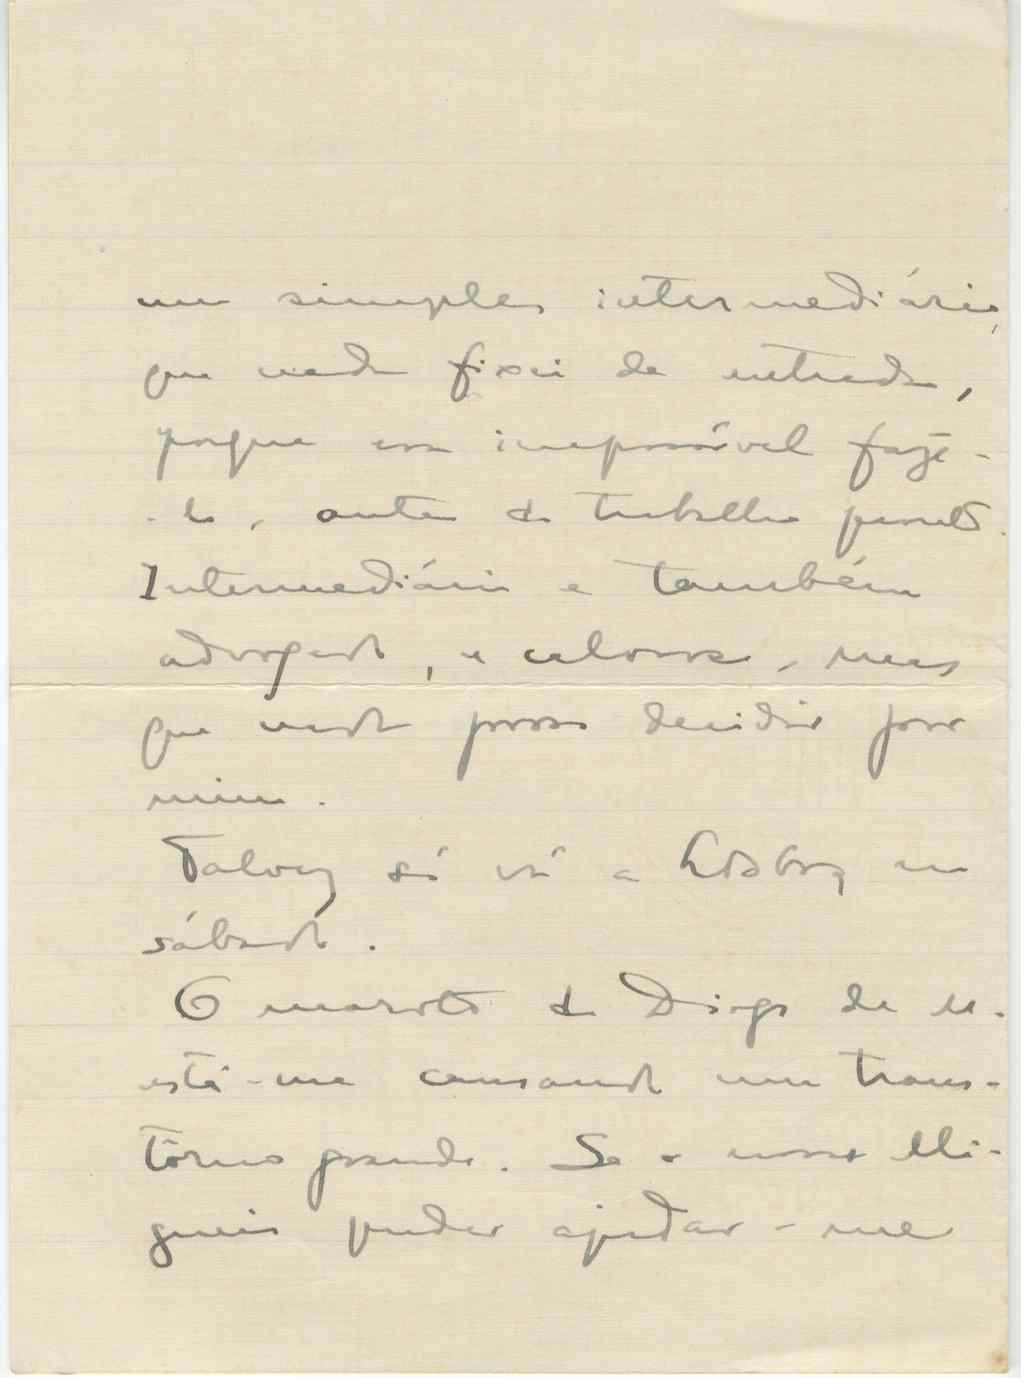 um simples intermediário,
que nada fixei de entrada,
porque era impossível fazê-
-lo, antes do trabalho pronto.
Intermediário e também
advogado, e caloroso, mas
que nada posso decidir por
mim.
Talvez só vá a Lisboa no
sábado.
O maroto do Diogo de M.
está-me causando um trans-
tôrno grande. Se o nosso Mi-
guéis puder ajudar-me